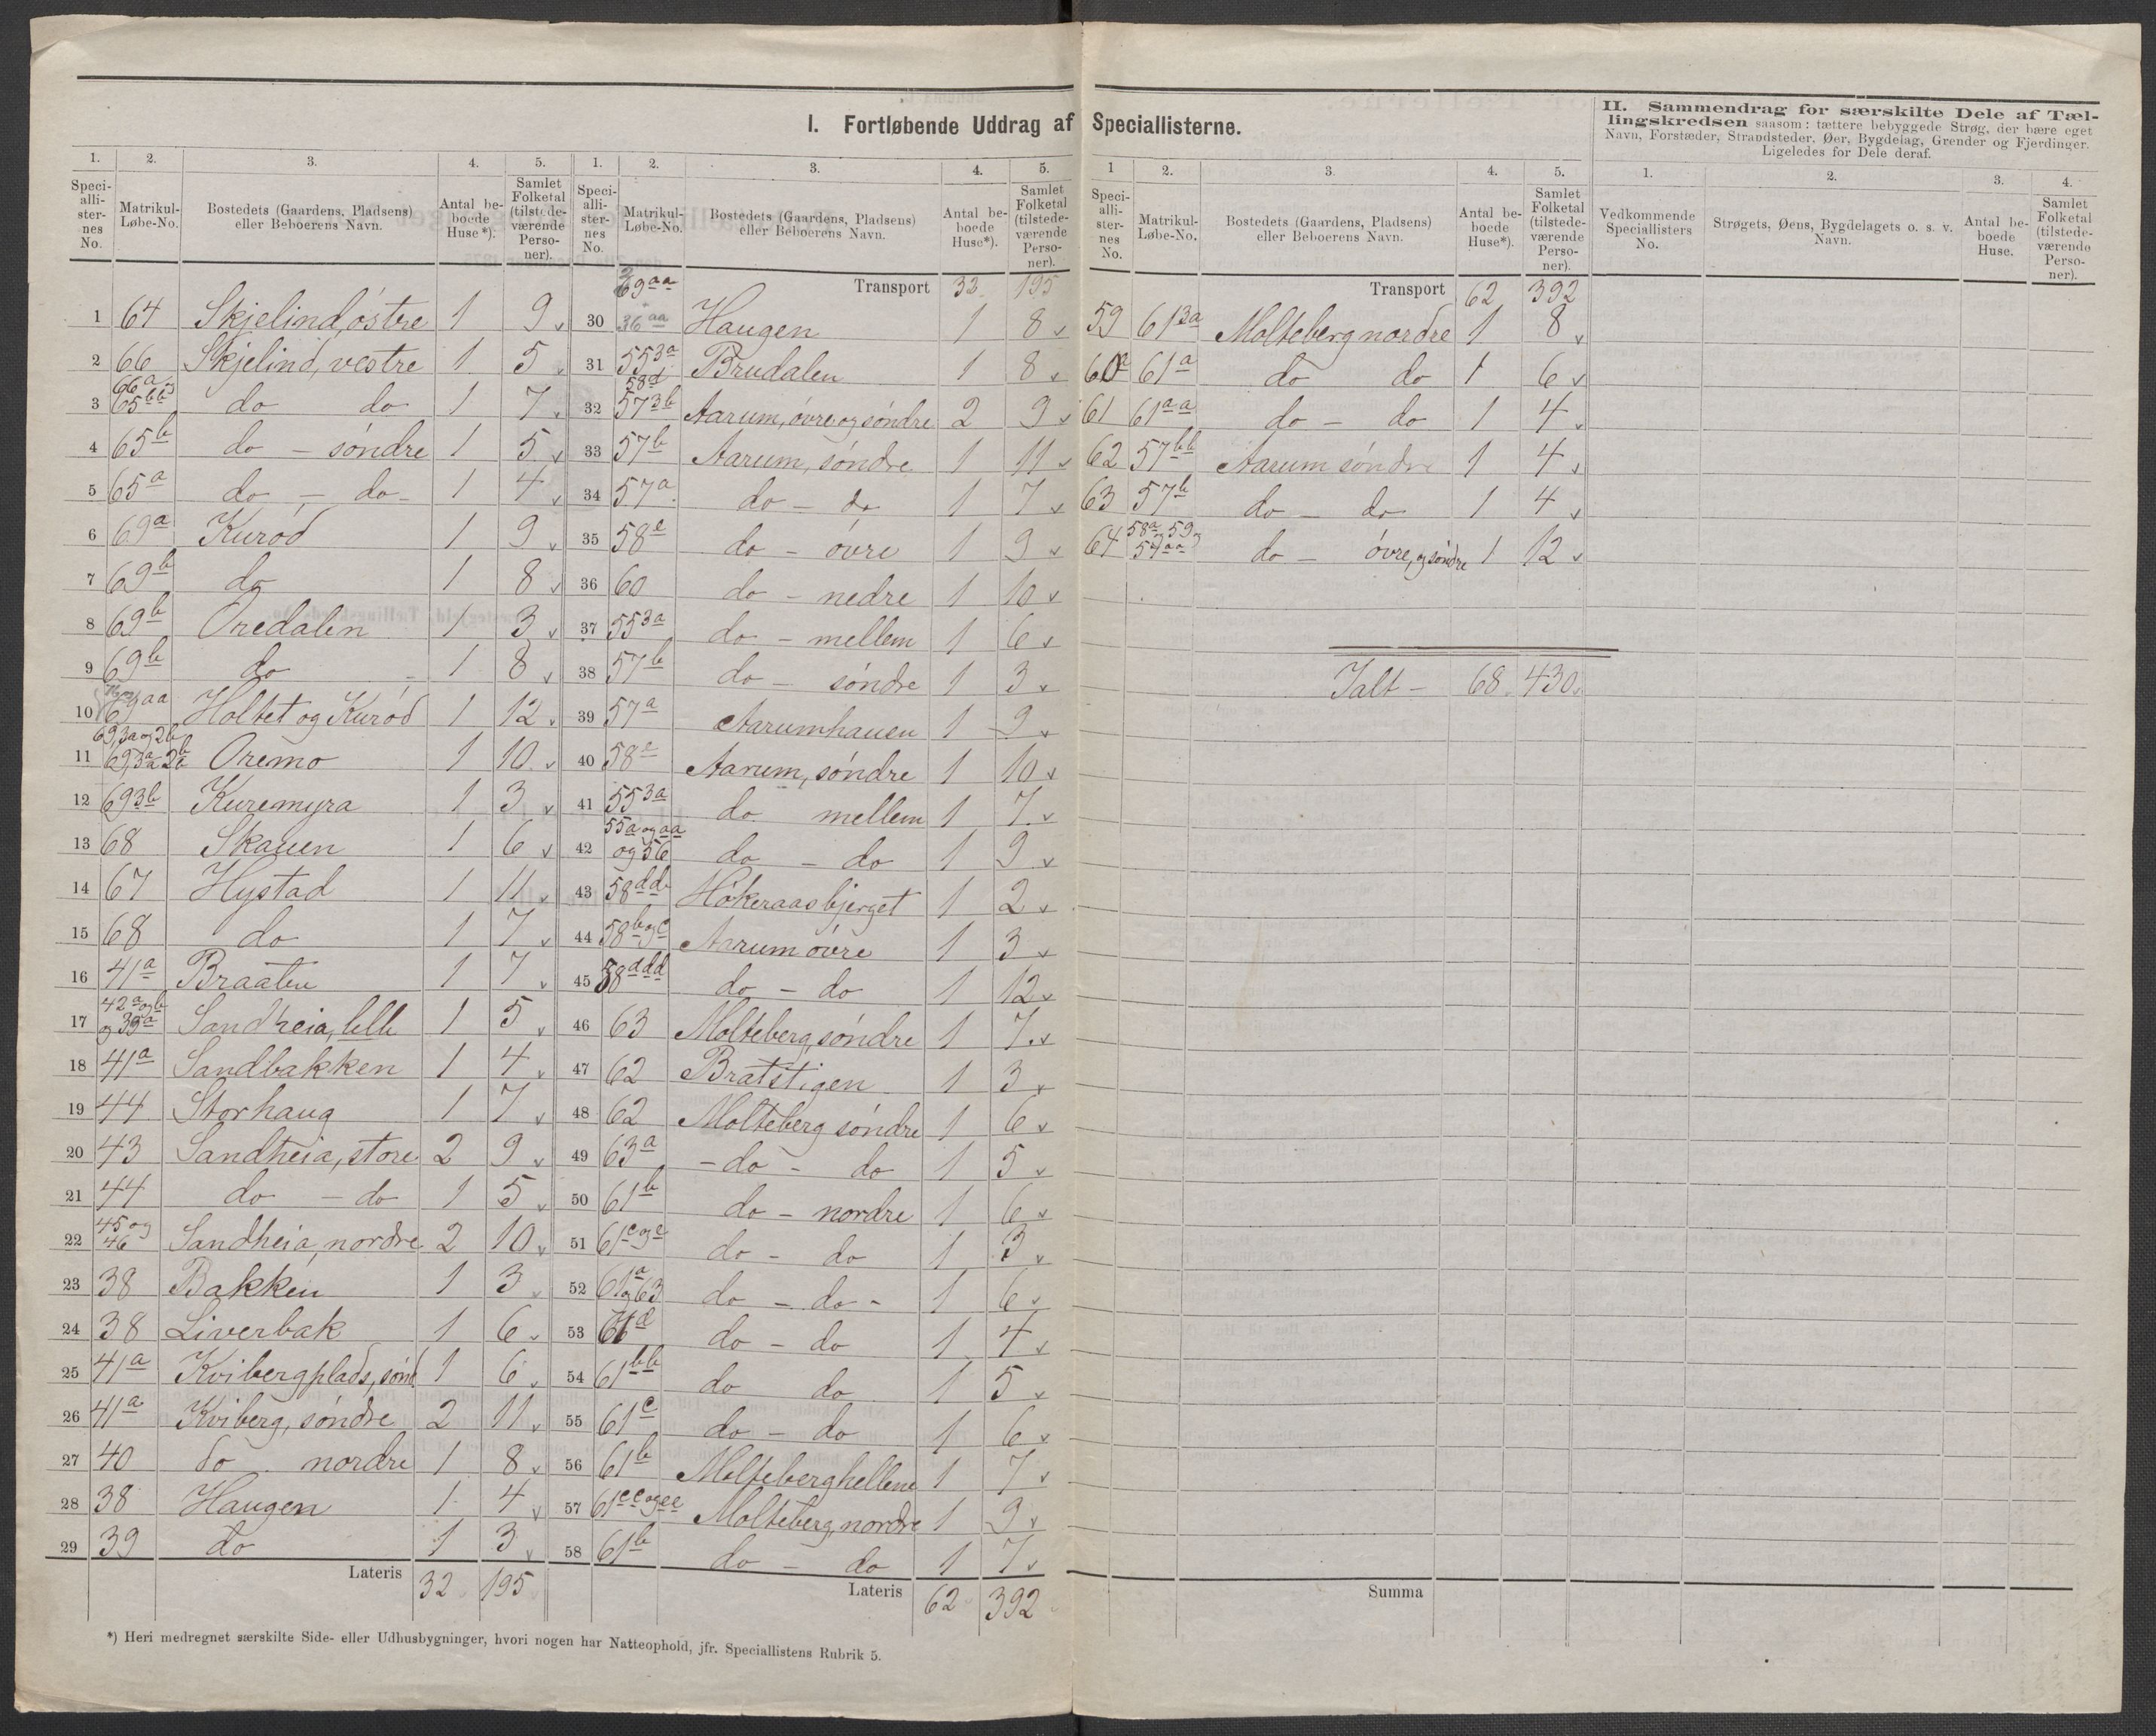 I. Fortløbende Uddrag af Speciallisterne.
II. Sammendrag for særskilte Dele af Tæl-
lingskredsen saasom: tættere bebyggede Strøg, der bære eget
Navn, Forstæder, Strandsteder, Øer, Bygdelag, Grender og Fjerdinger.
Ligeledes for Dele deraf.
1. 2. 3. 4. 5.
Speciallisternes No. Matrikul-Løbe-No. Bostedets (Gaardens, Pladsens) eller Beboerens Navn. Antal beboede Huse*). Samlet Folketal (tilstedeværende Personer).
1 64 Skjelind, östre 1 9
2 66 Skjelind, vestre 1 5
3 66a 65bb do do 1 7
4 65b do - söndre 1 5
5 65a do - do 1 4
6 69a Kuröd 1 9
7 69b do 1 8
8 69b Oredalen 1 3
9 69b do 1 8
10 69aa Holtet og Kuröd 1 12
11 69,3a og 2b Oremo 1 10
12 693b Kuremyra 1 3
13 68 Skauen 1 6
14 67 Hystad 1 11
15 68 do 1 7
16 41a Braaten 1 7
17 42a og b og 39a Sandheia, lille 1 5
18 41a Sandbakken 1 4
19 44 Storhaug 1 7
20 43 Sandheia, store 2 9
21 44 do - do 1 5
22 45 og 46 Sandheia, nordre 2 10
23 38 Bakken 1 3
24 38 Liverbak 1 6
25 41a Kvibergplads, sönd 1 6
26 41a Kviberg, söndre 2 11
27 40 do nordre 1 8
28 38 Haugen 1 4
29 39 do 1 3
Lateris 32 195
1. 2. 3. 4. 5.
Speciallisternes No. Matrikul-Løbe-No. Bostedets (Gaardens, Pladsens) eller Beboerens Navn. Antal beboede Huse*). Samlet Folketal (tilstedeværende Personer).
Transport 32 195
30 69aa 36aa Haugen 1 8
31 553a Brudalen 1 8
32 58d 573b Aarum, övre og söndre 2 9
33 57b Aarum, söndre 1 11
34 57a do - do 1 7
35 58e do - övre 1 9
36 60 do - nedre 1 10
37 553a do - mellem 1 6
38 57b do - söndre 1 3
39 57a Aarumhauen 1 9
40 58e Aarum, söndre 1 10
41 553a do mellem 1 7
42 55a og aa og 56 do - do 1 9
43 58dd Hökeraasbjerget 1 2
44 58b og c Aarum övre 1 3
45 58ddd do - do 1 12
46 63 Molteberg, söndre 1 7
47 62 Bratstigen 1 3
48 62 Molteberg söndre 1 6
49 63a - do - do 1 5
50 61b do - nordre 1 6
51 61c og e do - do 1 3
52 61a og 63 do - do - 1 6
53 61d do - do 1 4
54 61bb do do 1 5
55 61c do - do 1 6
56 61b Molteberghellene 1 7
57 61cc og ee Molteberg, nordre 1 9
58 61b do - do 1 7
Lateris 62 392
1 2. 3. 4. 5.
Speciallisternes No. Matrikul-Løbe-No. Bostedets (Gaardens, Pladsens) eller Beboerens Navn. Antal beboede Huse*). Samlet Folketal (tilstedeværende Personer).
Transport 62 392
59 613a Molteberg nordre 1 8
60 61a do do 1 6
61 61aa do - do 1 4
62 57bb Aarum söndre 1 4
63 57b do - do 1 4
64 58a og 59 og 57aa do - övre, og söndre 1 12
Ialt - 68 430
Summa
1. 2. 3. 4.
Vedkommende Speciallisters No. Strøgets, Øens, Bygdelagets o. s. v. Navn. Antal beboede Huse. Samlet Folketal (tilstedeværende Personer).
*) Heri medregnet særskilte Side- eller Udhusbygninger, hvori nogen har Natteophold, jfr. Speciallistens Rubrik 5.